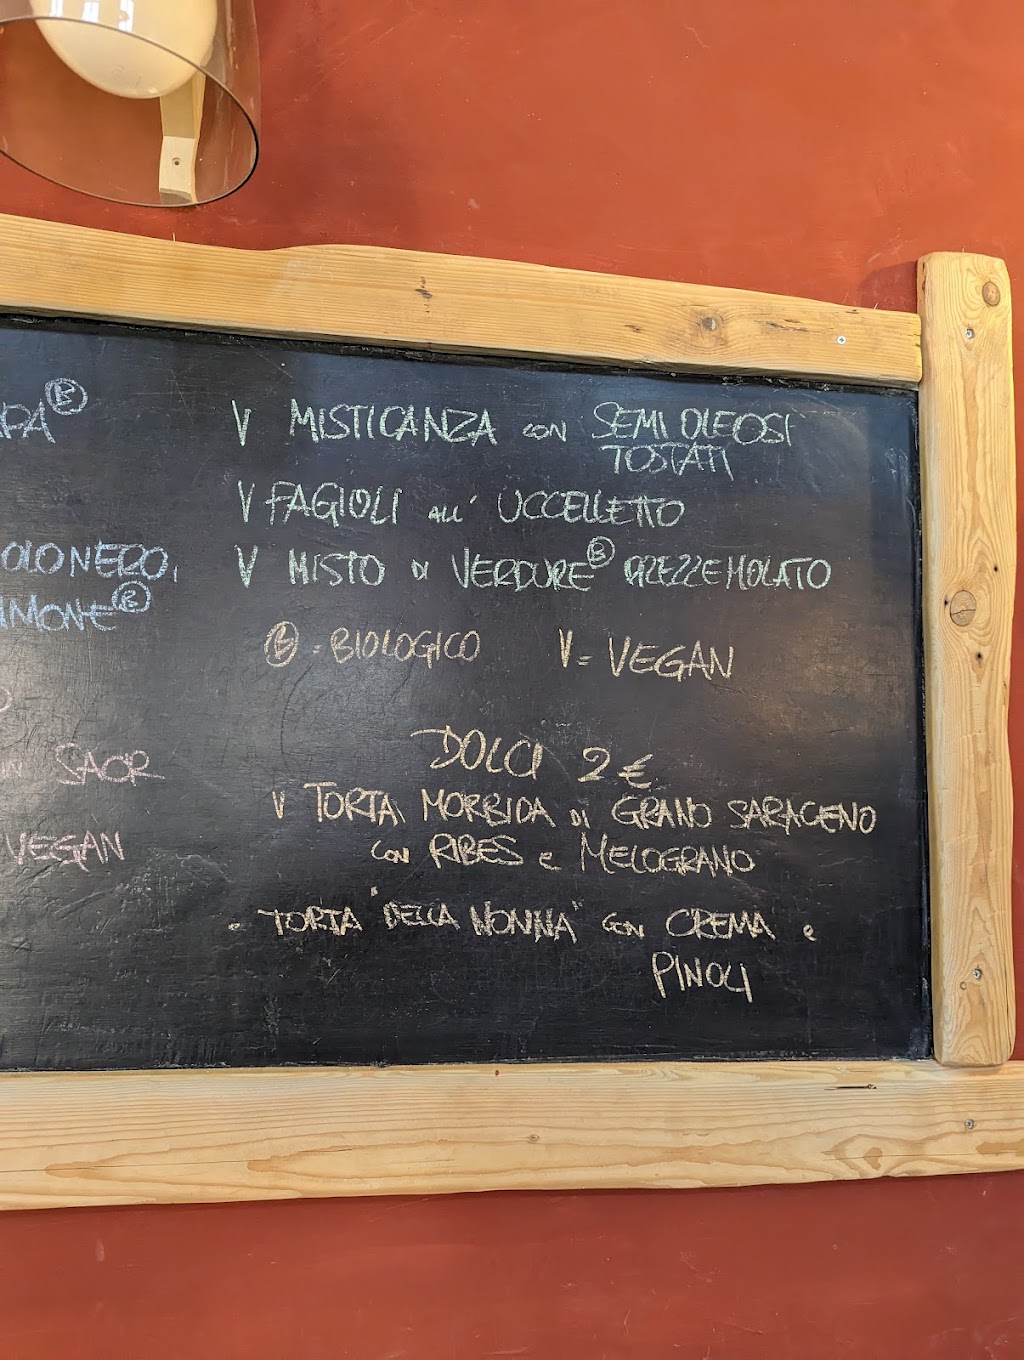 V MISTICANZA CON SEMI OLEOSI
TOSTATI
V FAGIOLI ALL' UCCELLETTO
V MISTO DI VERDURE Ⓑ PREZZEMOLATO
Ⓑ = BIOLOGICO V = VEGAN
DOLCI 2 €
V TORTA MORBIDA DI GRANO SARACENO
CON RIBES e MELOGRANO
• TORTA "DELLA NONNA" CON CREMA e
PINOLI
OLO NERO,
Ⓑ
SAOR
VEGAN